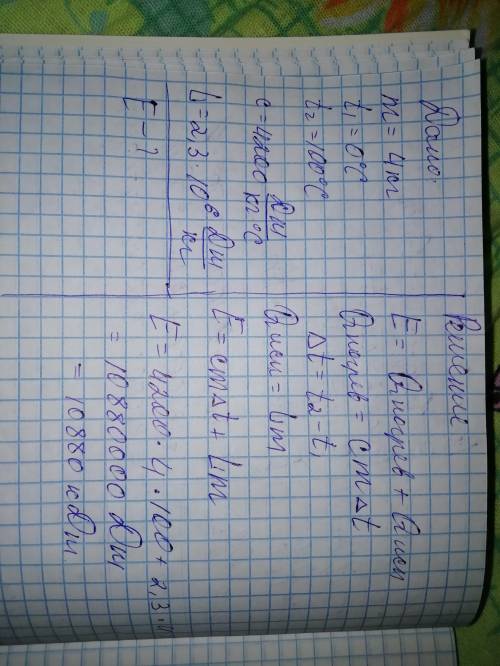 Дано:
m = 4 кг
t₁ = 0°C
t₂ = 100°C
c = 4200 Дж/кг°C
L = 2,3 · 10⁶ Дж/кг
E - ?
Решение:
E = Qнагрев + Qисп
Qнагрев = cmΔt
Δt = t₂ - t₁
Qисп = Lm
E = cmΔt + Lm
E = 4200 · 4 · 100 + 2,3 ·
= 10880000 Дж
= 10880 кДж.